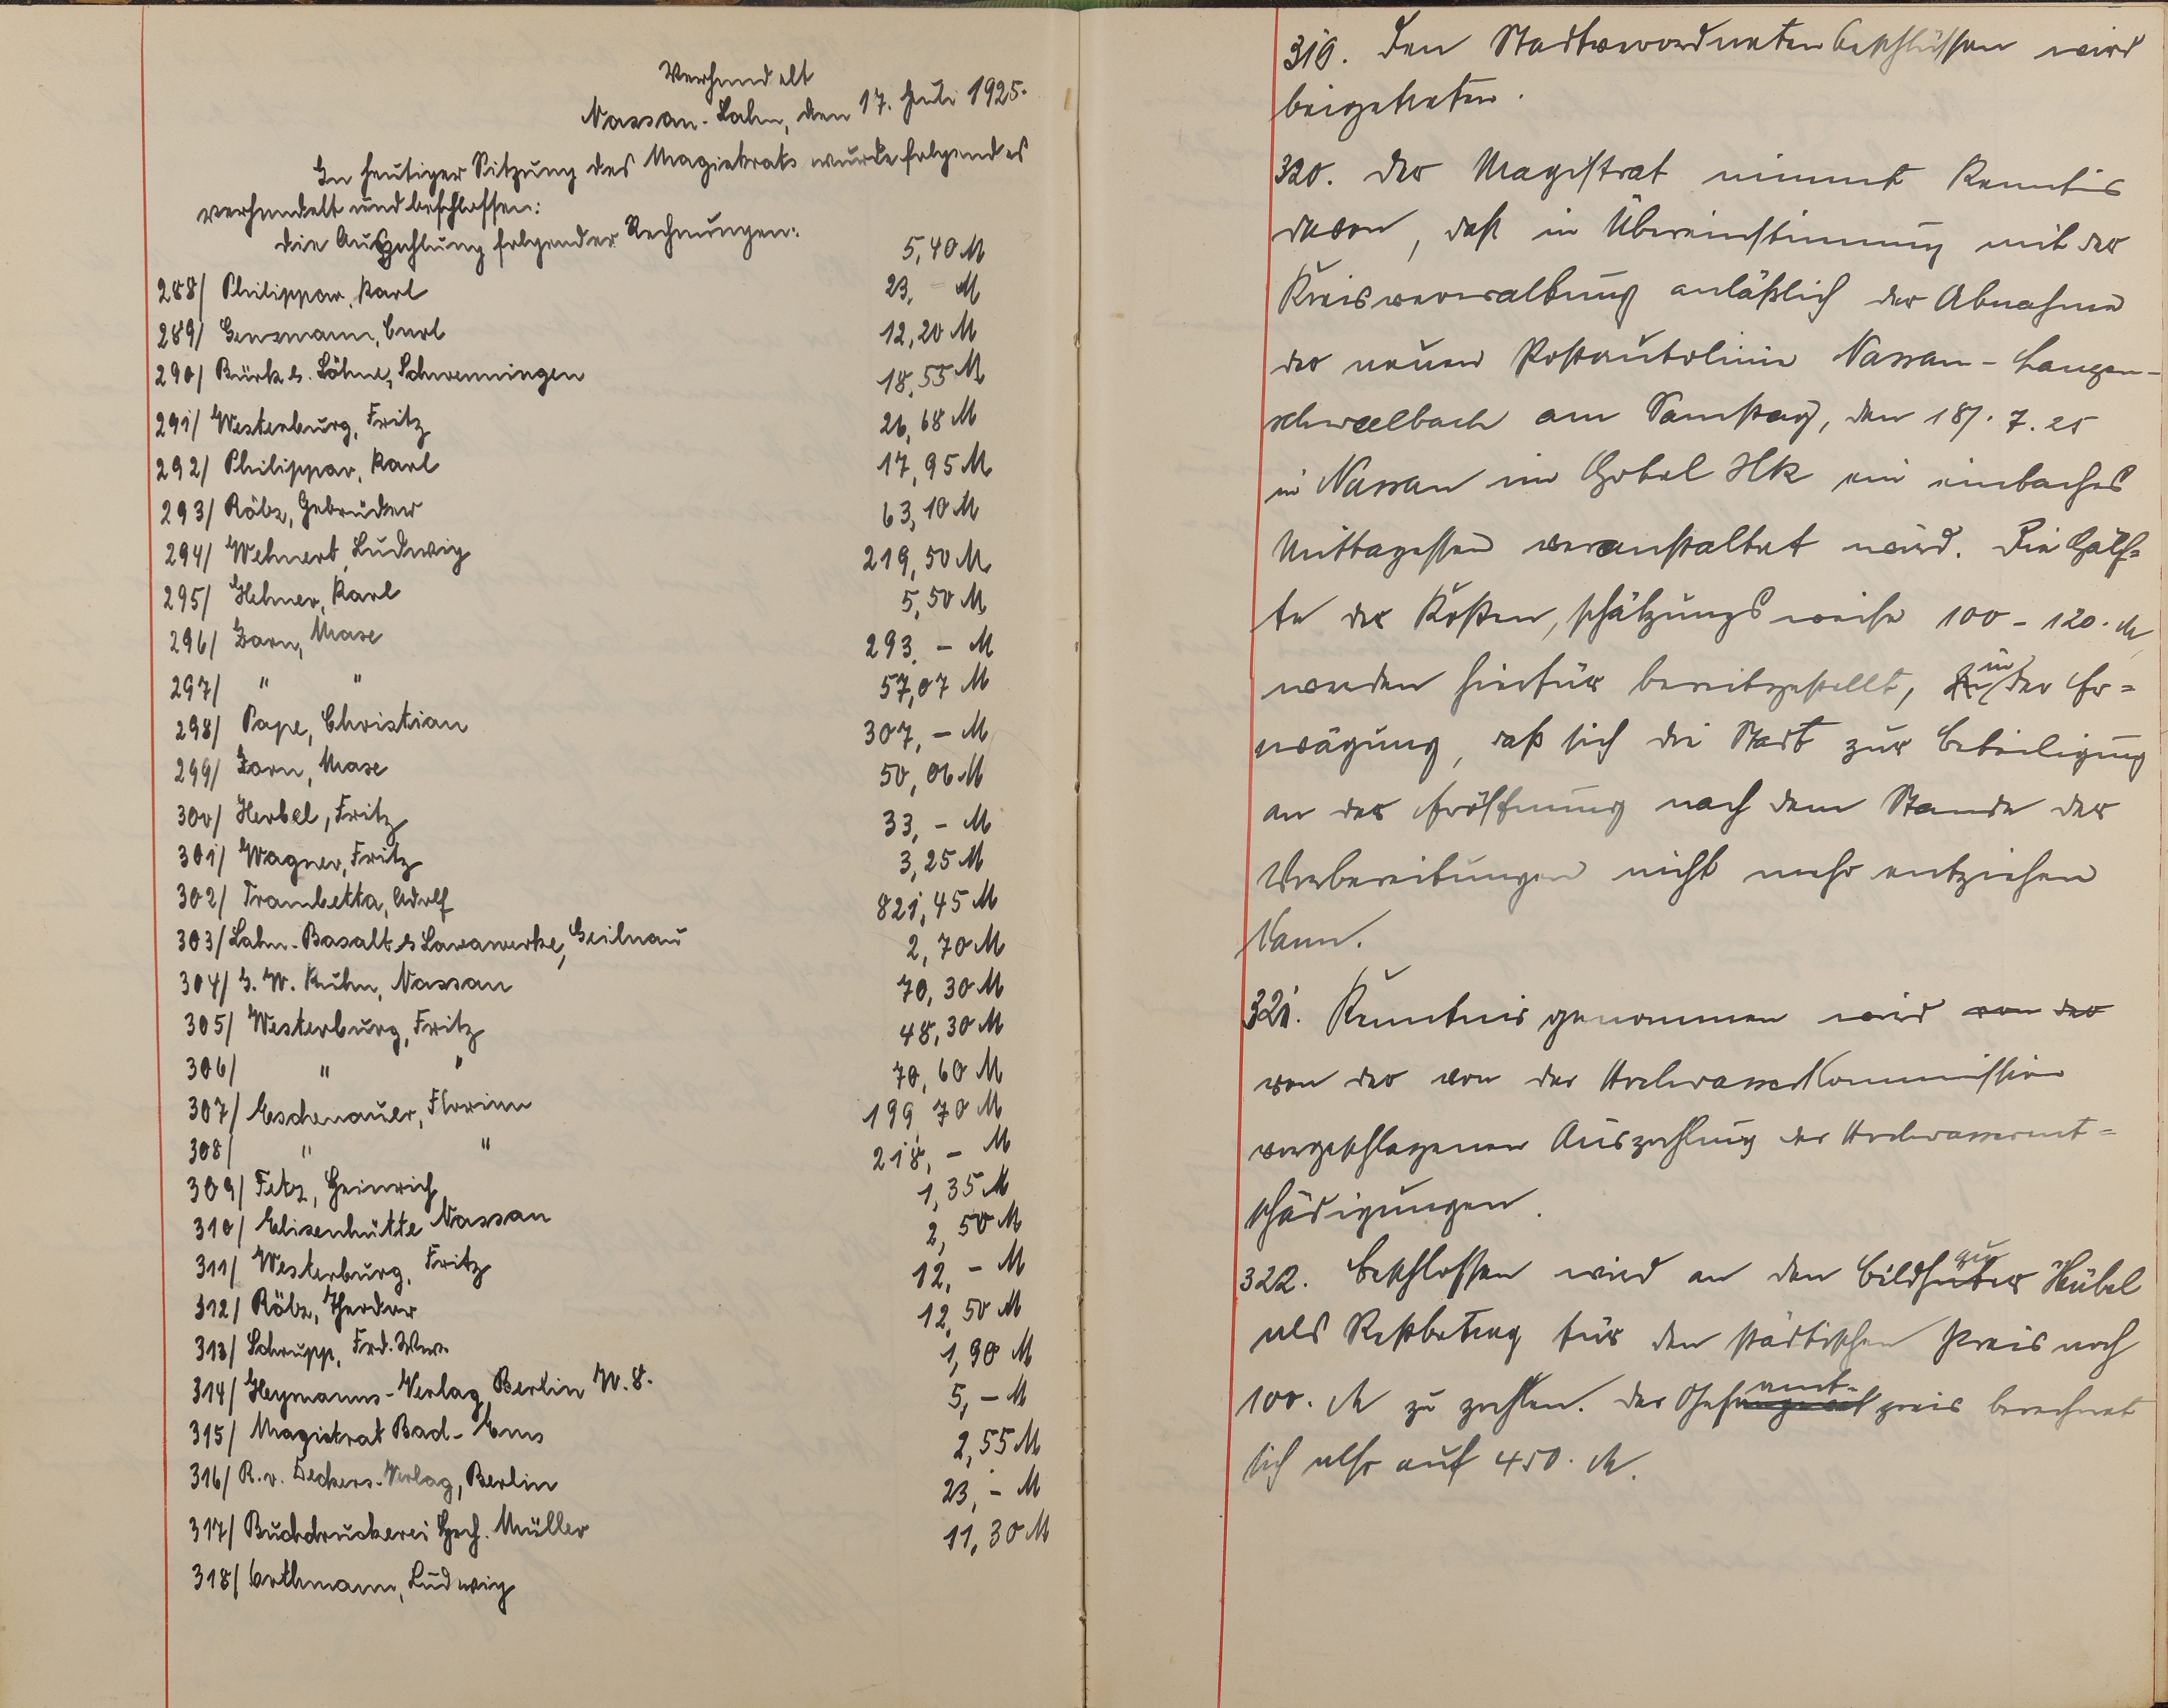 Verhandelt
Nassau-Lahn, den 17. Juli 1925.
In heutiger Sitzung des Magistrats wurde folgendes
verhandelt und beschlossen:
Die Auszahlung folgender Rechnungen:
288/ Philippar, Karl 5,40 M
289/ Genzmann, Carl 23, - M
290/ Bürk s. Söhne, Schwenningen 12,20 M
291/ Westerburg, Fritz 18,55 M
292/ Philippar, Karl 26,68 M
293/ Röbz, Gebrüder 17,95 M
294/ Wehnert, Ludwig 63,10 M
295/ Hehner, Karl 219,50 M
296/ Zorn, Mase 5,50 M
297/ " " 293, - M
298/ Pape, Christian 57,07 M
299/ Zorn, Mase 307, - M
300/ Herbel, Fritz 50,06 M
301/ Wagner, Fritz 33, - M
302/ Trombetta, Adolf 3,25 M
303/ Lahn-Basalt & Lavawerke, Geilnau 821,45 M
304/ J. W. Kuhn, Nassau 2,70 M
305/ Westerburg, Fritz 70,30 M
306/ " " 48,30 M
307/ Eschenauer, Florian 70,60 M
308/ " " 199,70 M
309/ Fetz, Heinrich 218, - M
310/ Elisenhütte Nassau 1,35 M
311/ Westerburg, Fritz 2,50 M
312/ Röbz, Theodor 12, - M
313/ Schrupp, Ferd. Ww. 12,50 M
314/ Heymanns-Verlag Berlin W. 8. 1,90 M
315/ Magistrat Bad-Ems 5, - M
316/ R. v. Deckers-Verlag, Berlin 2,55 M
317/ Buchdruckerei Hch. Müller 23, - M
318/ Orthmann, Ludwig 11,30 M
319. Den Stadtverordnetenbeschlüssen wird
beigetreten.
320. Der Magistrat nimmt Kenntnis
davon, daß in Übereinstimmung mit der
Kreisverwaltung anläßlich der Abnahme
der neuen Postautolinie Nassau-Langen-
schwalbach am Samstag, den 18/. 7. 25
in Nassau im Hotel ein einfaches
Mittagessen veranstaltet wird. Die Hälf=
te der Kosten, schätzungsweise 100 - 120. M
werden hierfür bereitgestellt, in der Er=
wägung, daß sich die Stadt zur Beteiligung
an der Eröffnung nach dem Stande der
Vorbereitungen nicht mehr entziehen
kann.
321. Kenntnis genommen wird von der
von der von der Hochwasserkommission
vorgeschlagenen Auszahlung der Hochwasserent=
schädigungen.
322. Beschlossen wird an den Bildhauer Hübel
als Restbetrag für den städtischen Preis noch
100. M zu zahlen. Der Gesamt-preis berechnet
sich also auf 450. M.